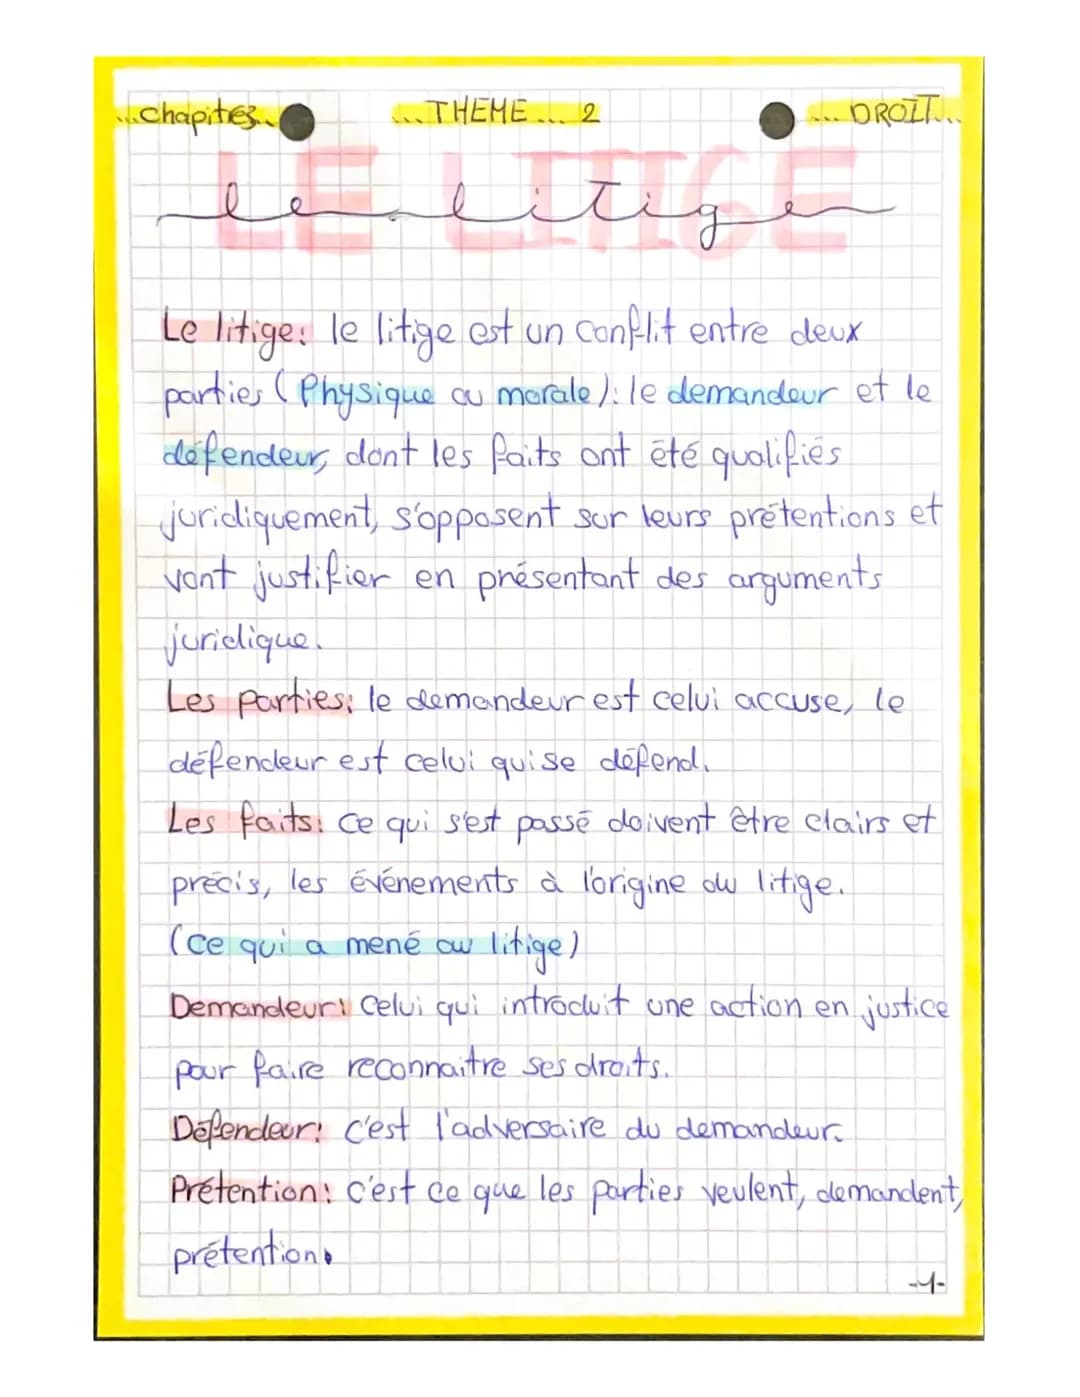 ...chapitre3... ...THEME... 2 ...DROIT...
LE LITIGE
le litige
Le litige: le litige est un conflit entre deux
parties (Physique ou morale): le demandeur et le
défendeur, dont les faits ont été qualifiés
juridiquement, s'opposent sur leurs prétentions et
vont justifier en présentant des arguments
juridique.
Les parties: le demandeur est celui accuse, le
défendeur est celui qui se défend.
Les faits: ce qui s'est passé doivent être clairs et
précis, les événements à l'origine du litige.
(ce qui a mené au litige)
Demandeur: Celui qui introduit une action en justice
pour faire reconnaitre ses droits.
Défendeur: c'est l'adversaire du demandeur.
Prétention: c'est ce que les parties veulent, demandent,
prétention.
-1-